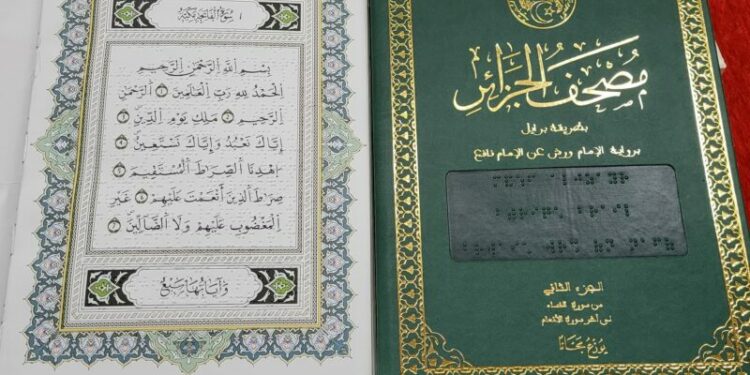 ١ سُورَةُ الفَاتِحَةِ مَكِّيَّة
بِسْمِ اللَّهِ الرَّحْمَٰنِ الرَّحِيمِ
اِلْحَمْدُ لِلَّهِ رَبِّ الْعَٰلَمِينَ ١ اَلرَّحْمَٰنِ
اِلرَّحِيمِ ٢ مَلِكِ يَوْمِ الدِّينِ ٣
إِيَّاكَ نَعْبُدُ وَإِيَّاكَ نَسْتَعِينُ ٤
اِهْدِنَا اَلصِّرَٰطَ اَلْمُسْتَقِيمَ ٥
صِرَٰطَ اَلذِينَ أَنْعَمْتَ عَلَيْهِمْ ٦ غَيْرِ
اِلْمَغْضُوبِ عَلَيْهِمْ وَلَا اَلضَّآلِّينَ ٧
وَآيَاتُهَا سَبْعٌ
مُصْحَفُ الجَزَائِر
بطريقة برايل
برواية الإمام ورش عن الإمام نافع
الجزء الثاني
من سورة النساء
إلى آخر سورة الأنعام
يُوزع مجانًا